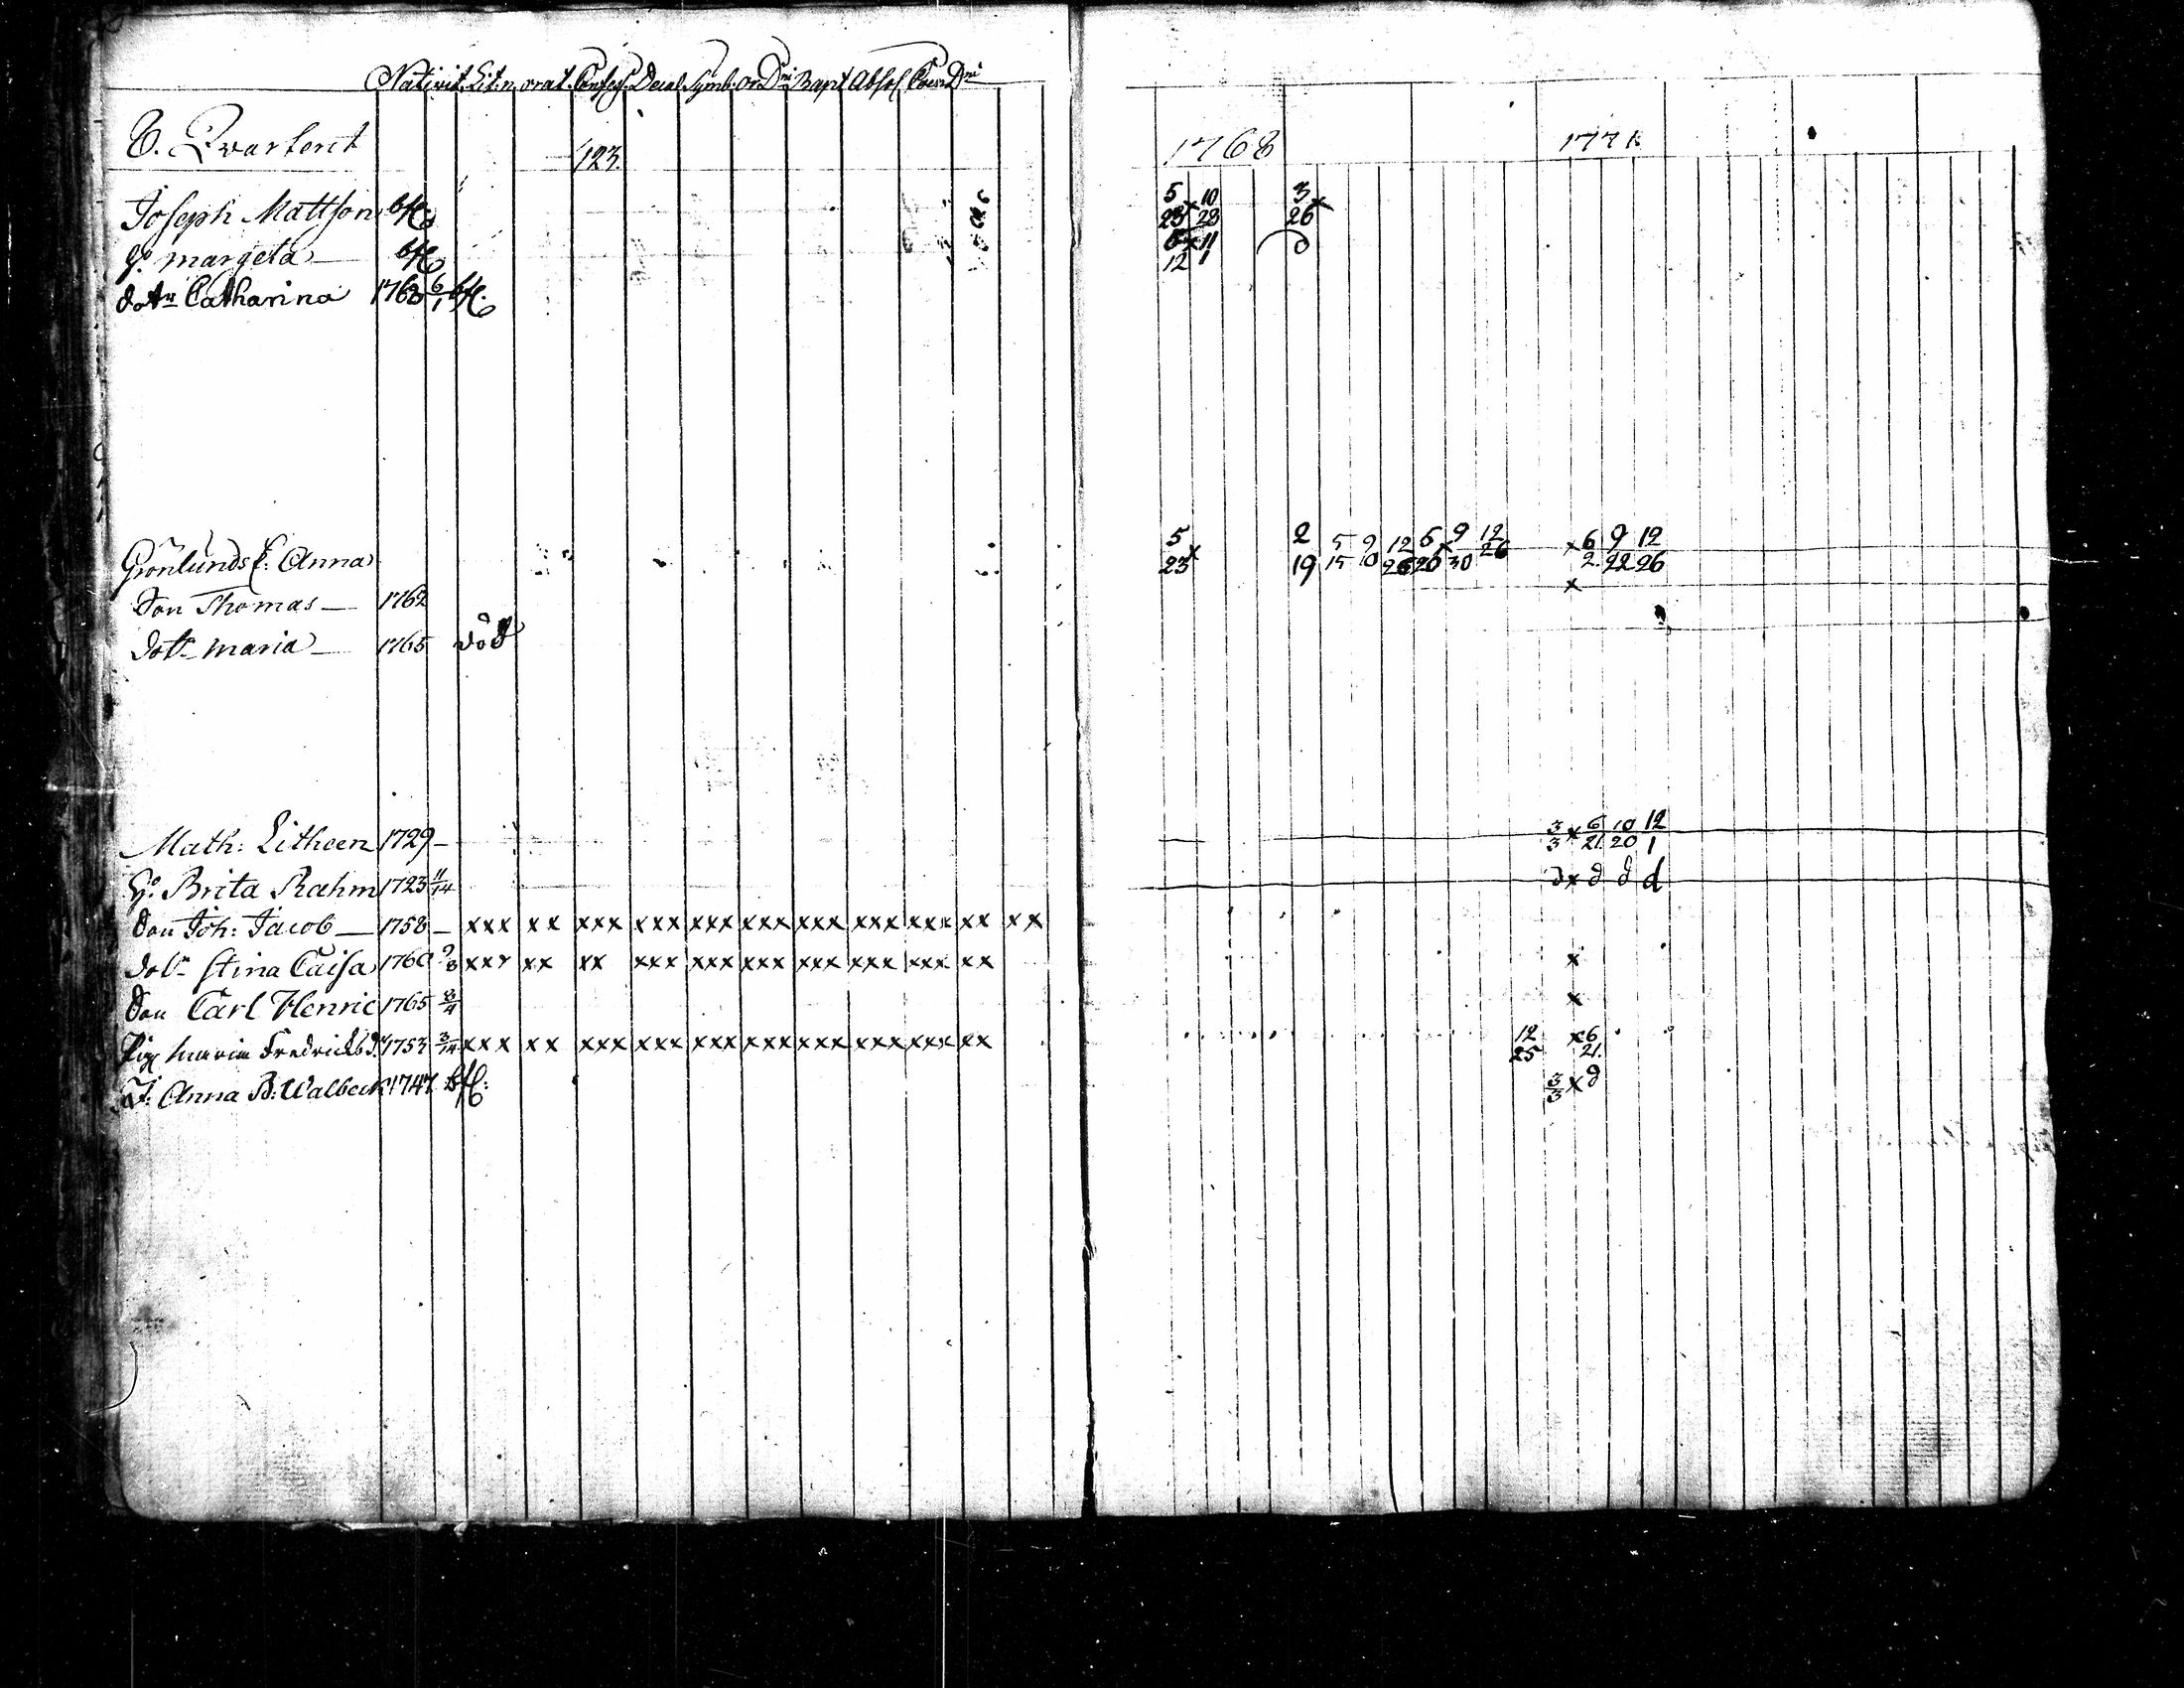 Nativit. Lit: n. orat. Confess. Decal. Symb. Or Dni Bapt Absol Coen Dni
Qvarteret
123.
1768
1771
Joseph Mattson 5 x 10 3 x
23 28 26
margeta 5 x 11
12 1
dotr Catharina 1763 6/1
Grönlunds E: Anna 5 x 2 5 9 12 6 x 9 12 x 6 9 12
23 19 15 26 20 30 26 2 22 26
Son Thomas 1762 x
dotr maria 1765 död
Math: Litheen 1729 3/3 x 6/21 10/20 12/1
H: Brita Rahm 1723 11/14 d x d d d
Son Joh: Jacob 1758 xxx xx xxx xxx xxx xxx xxx xxx xxx xx xx
dotr Stina Caisa 1760 9/8 xxx xx xx xxx xxx xxx xxx xxx xxx xx x
Son Carl Henric 1765 x
Pig maria Fredricksd: 1753 3/14 xxx xx xxx xxx xxx xxx xxx xxx xxx xx 12/25 x 6/21
Anna B: Walbeck 1747 3/3 x d